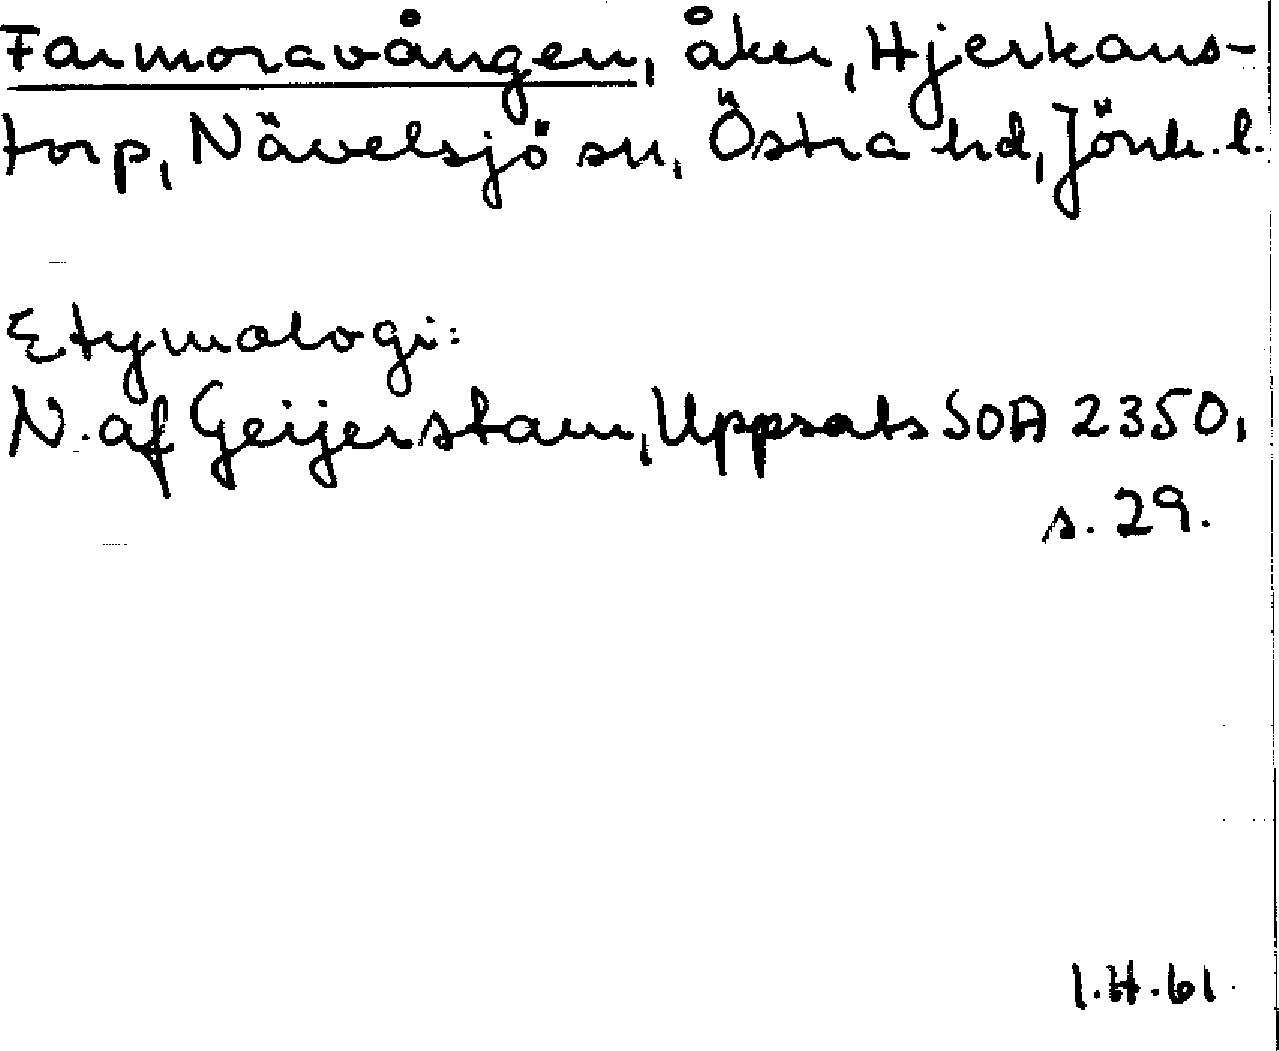 Farmoravången, åker, Hjerkans-
torp, Nävelsjö sn, Östra hd, Jönk. l.
Etymologi:
N. af Geijerstam, Uppsats SOA 2350,
s. 29.
I.H.61